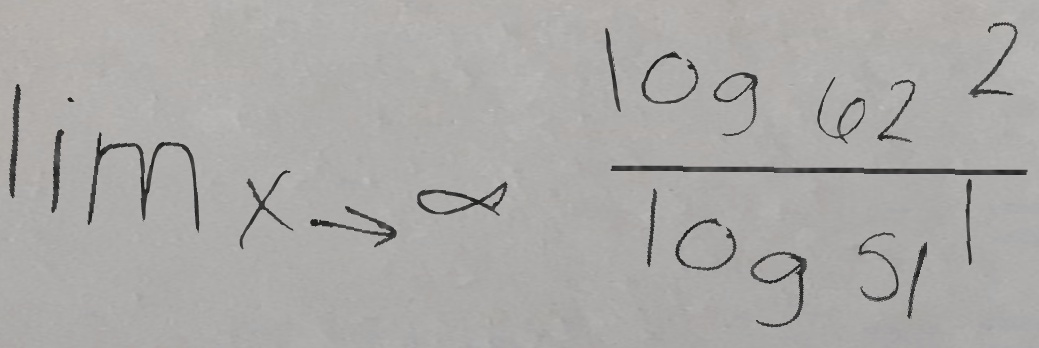 lim x→∞ log 62 2
log 51 1